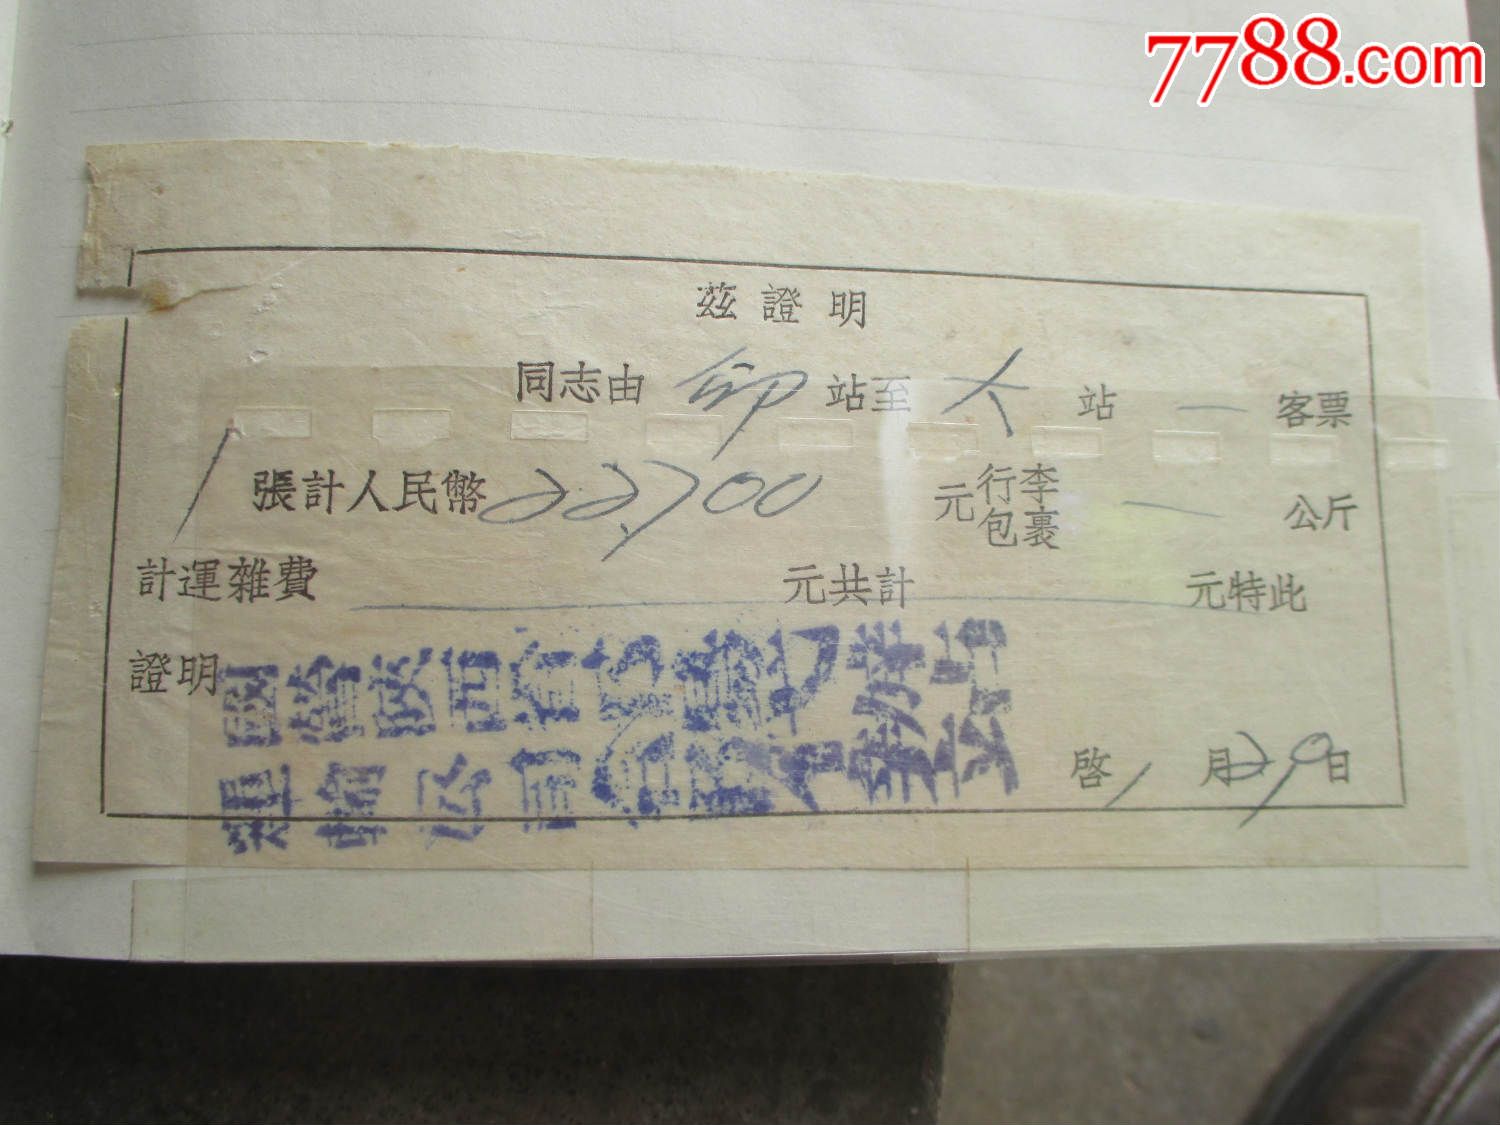 7788.com
茲證明
同志由 邠 站至 大 站 一 客票
1 張計人民幣 22,700 元 行李包裹 一 公斤
計運雜費 元共計 元特此
證明
國營陝西省
運輸公司
業務站
啓 1 月 29 日